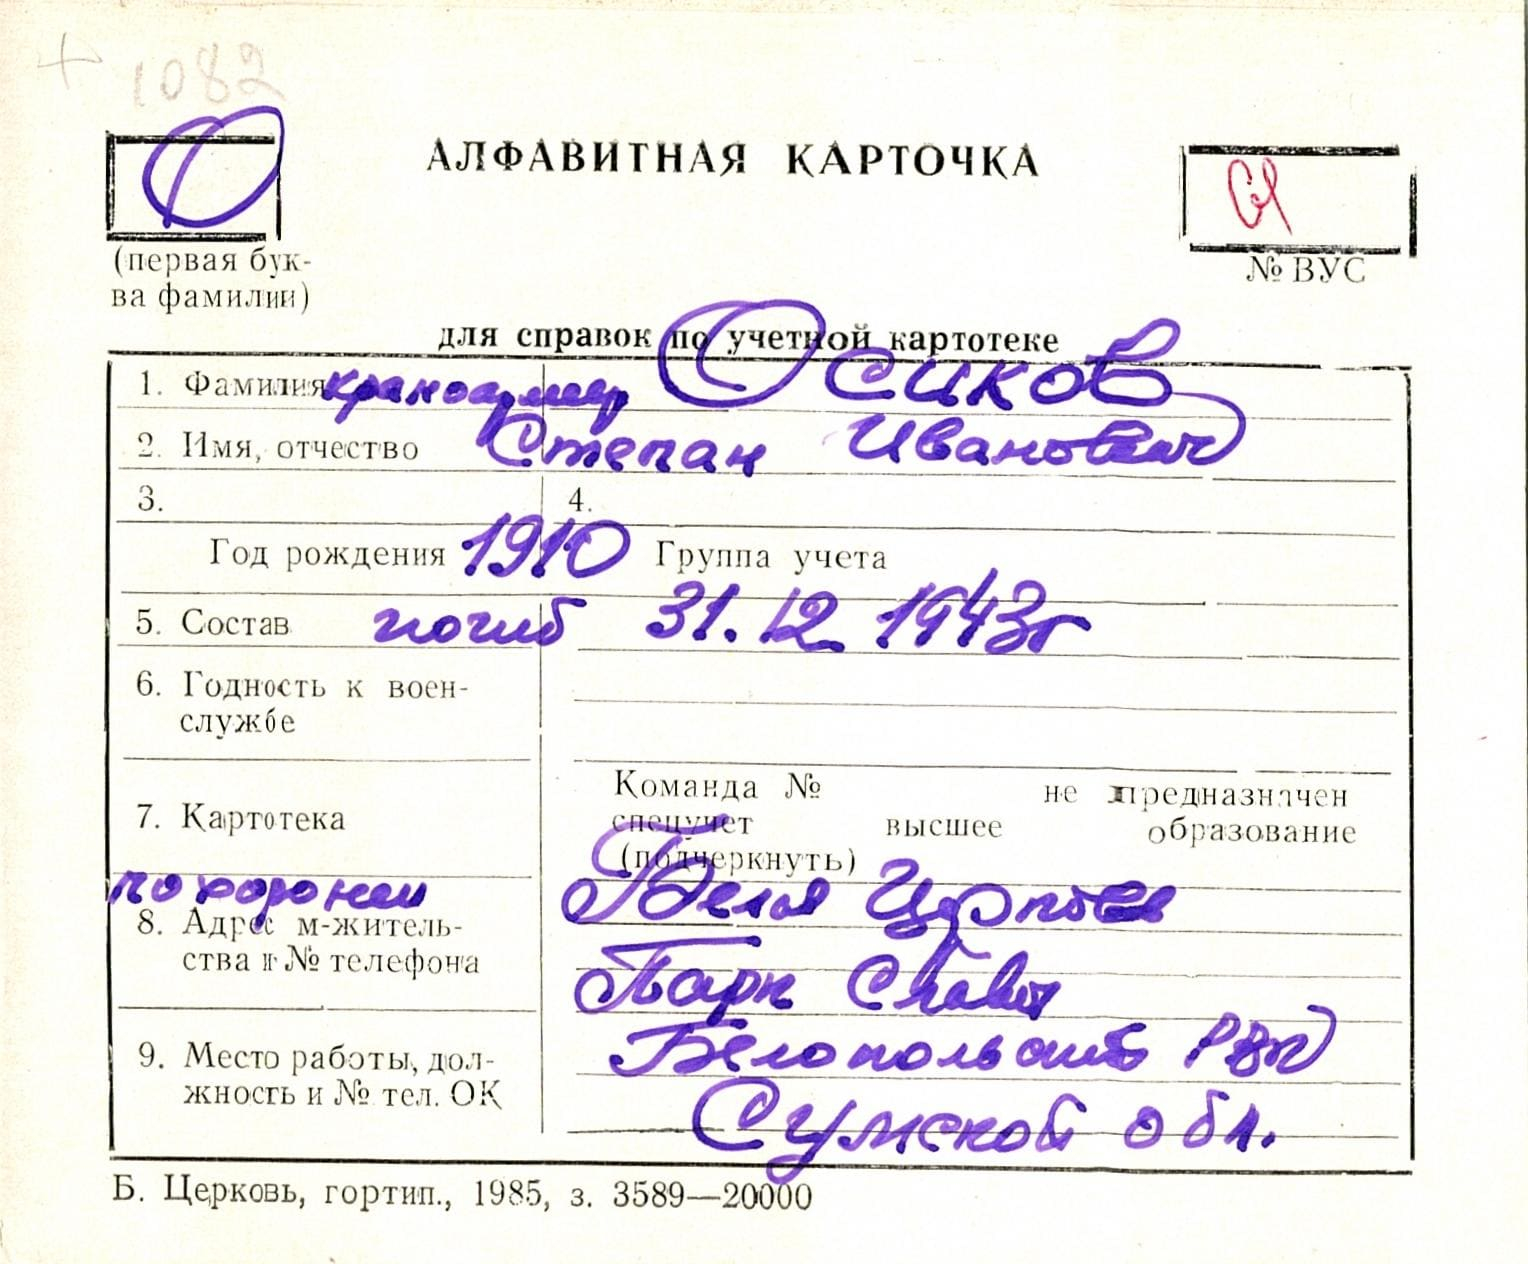 + 1082
О
АЛФАВИТНАЯ КАРТОЧКА
(первая бук-
ва фамилии)
№ ВУС
для справок по учетной картотеке
1. Фамилия красноармеер Осиков
2. Имя, отчество Степан Иванович
3. 4.
Год рождения 1910 Группа учета
5. Состав погиб 31.12.1943г
6. Годность к воен-
службе
Команда № не предназначен
7. Картотека спецучет высшее образование
(подчеркнуть)
похоронен Белая Церковь
8. Адрес м-житель-
ства и № телефона Парк Славы
9. Место работы, дол-
жность и № тел. ОК Белопольский РВК
Сумской обл.
Б. Церковь, гортип., 1985, з. 3589—20000